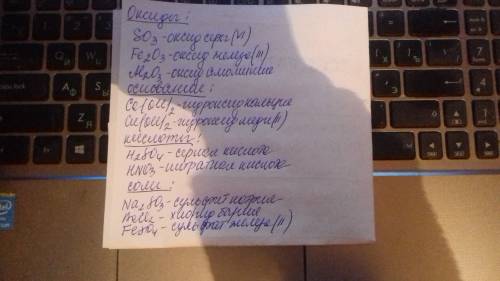 Оксиды:
SO3-оксид серы(VI)
Fe2O3-оксид железа(III)
Al2O3-оксид алюминия
основание:
Ca(OH)2-гидроксид кальция
Cu(OH)2-гидроксид меди(II)
кислоты:
H2SO4-серная кислота
HNO3-нитратная кислота
соли:
Na2SO3-сульфит натрия
BaCl2-хлорид бария
FeSO4-сульфат железа(II)